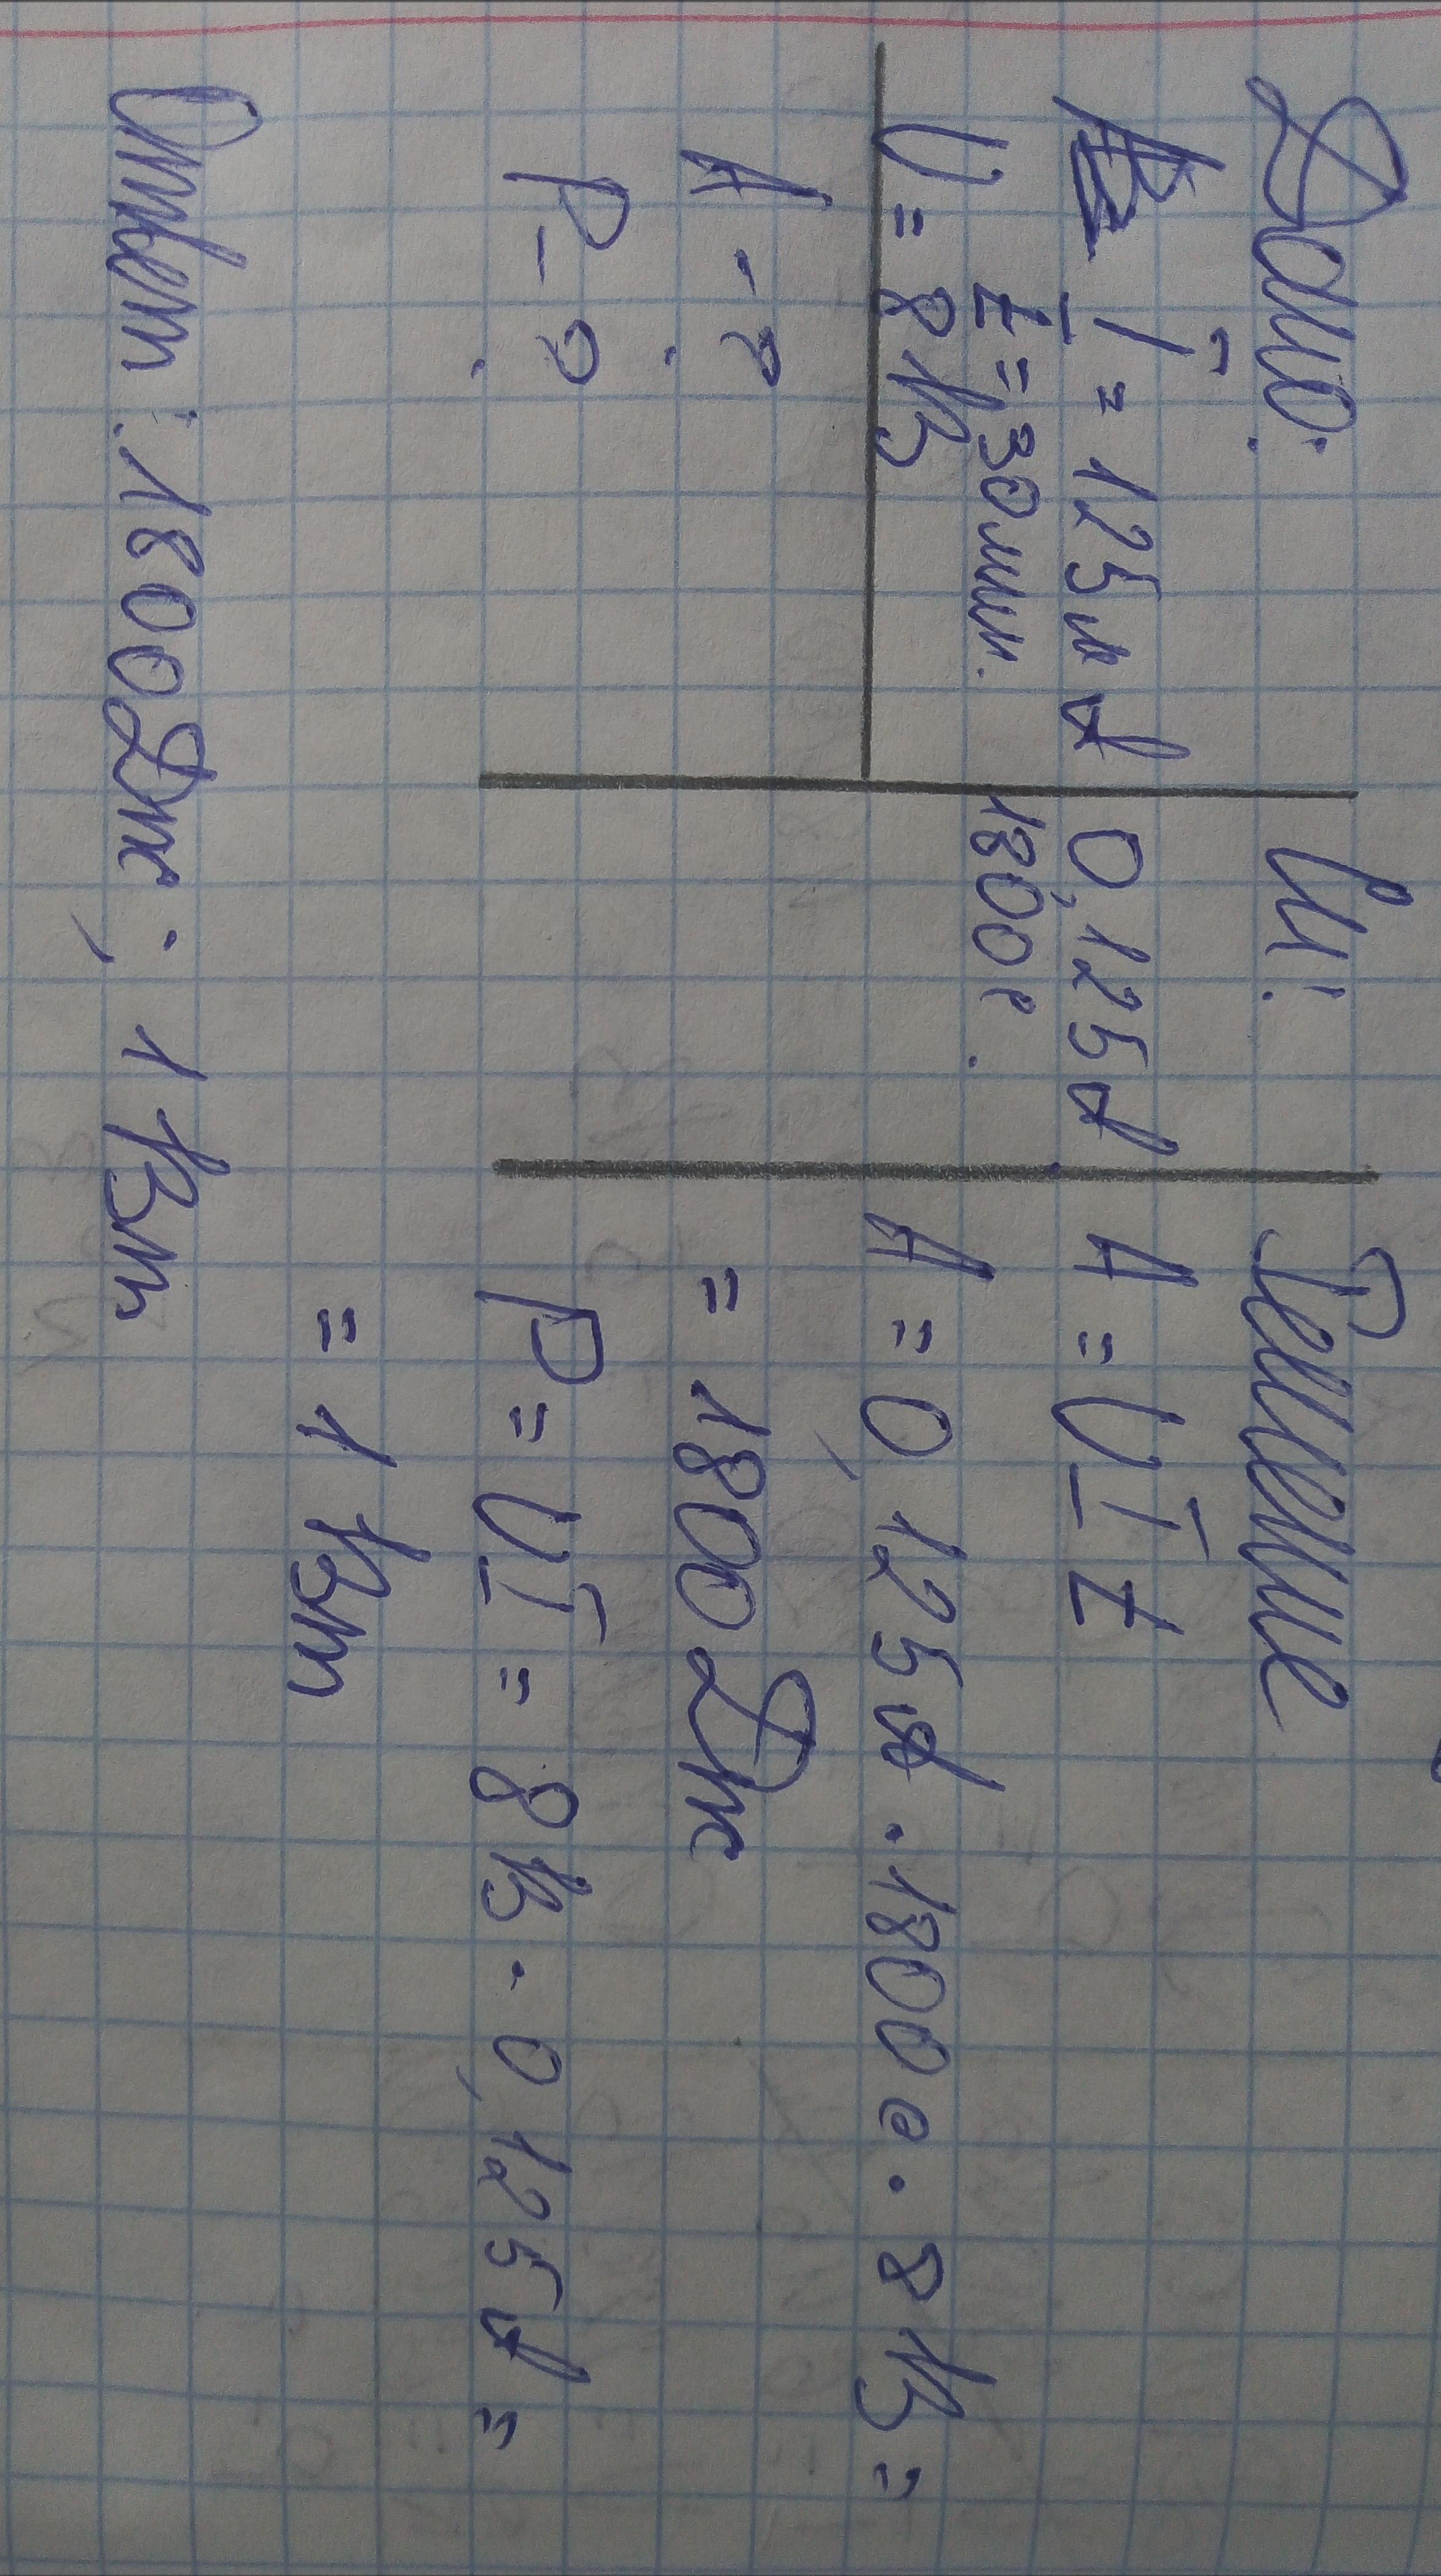 Дано: Си: Решение
I = 125мА 0,125А A = UIt
t = 30мин. 1800с.
U = 8В A = 0,125А · 1800с · 8В =
A - ? = 1800Дж
P - ? P = UI = 8В · 0,125А =
= 1 Вт
Ответ: 1800Дж; 1 Вт